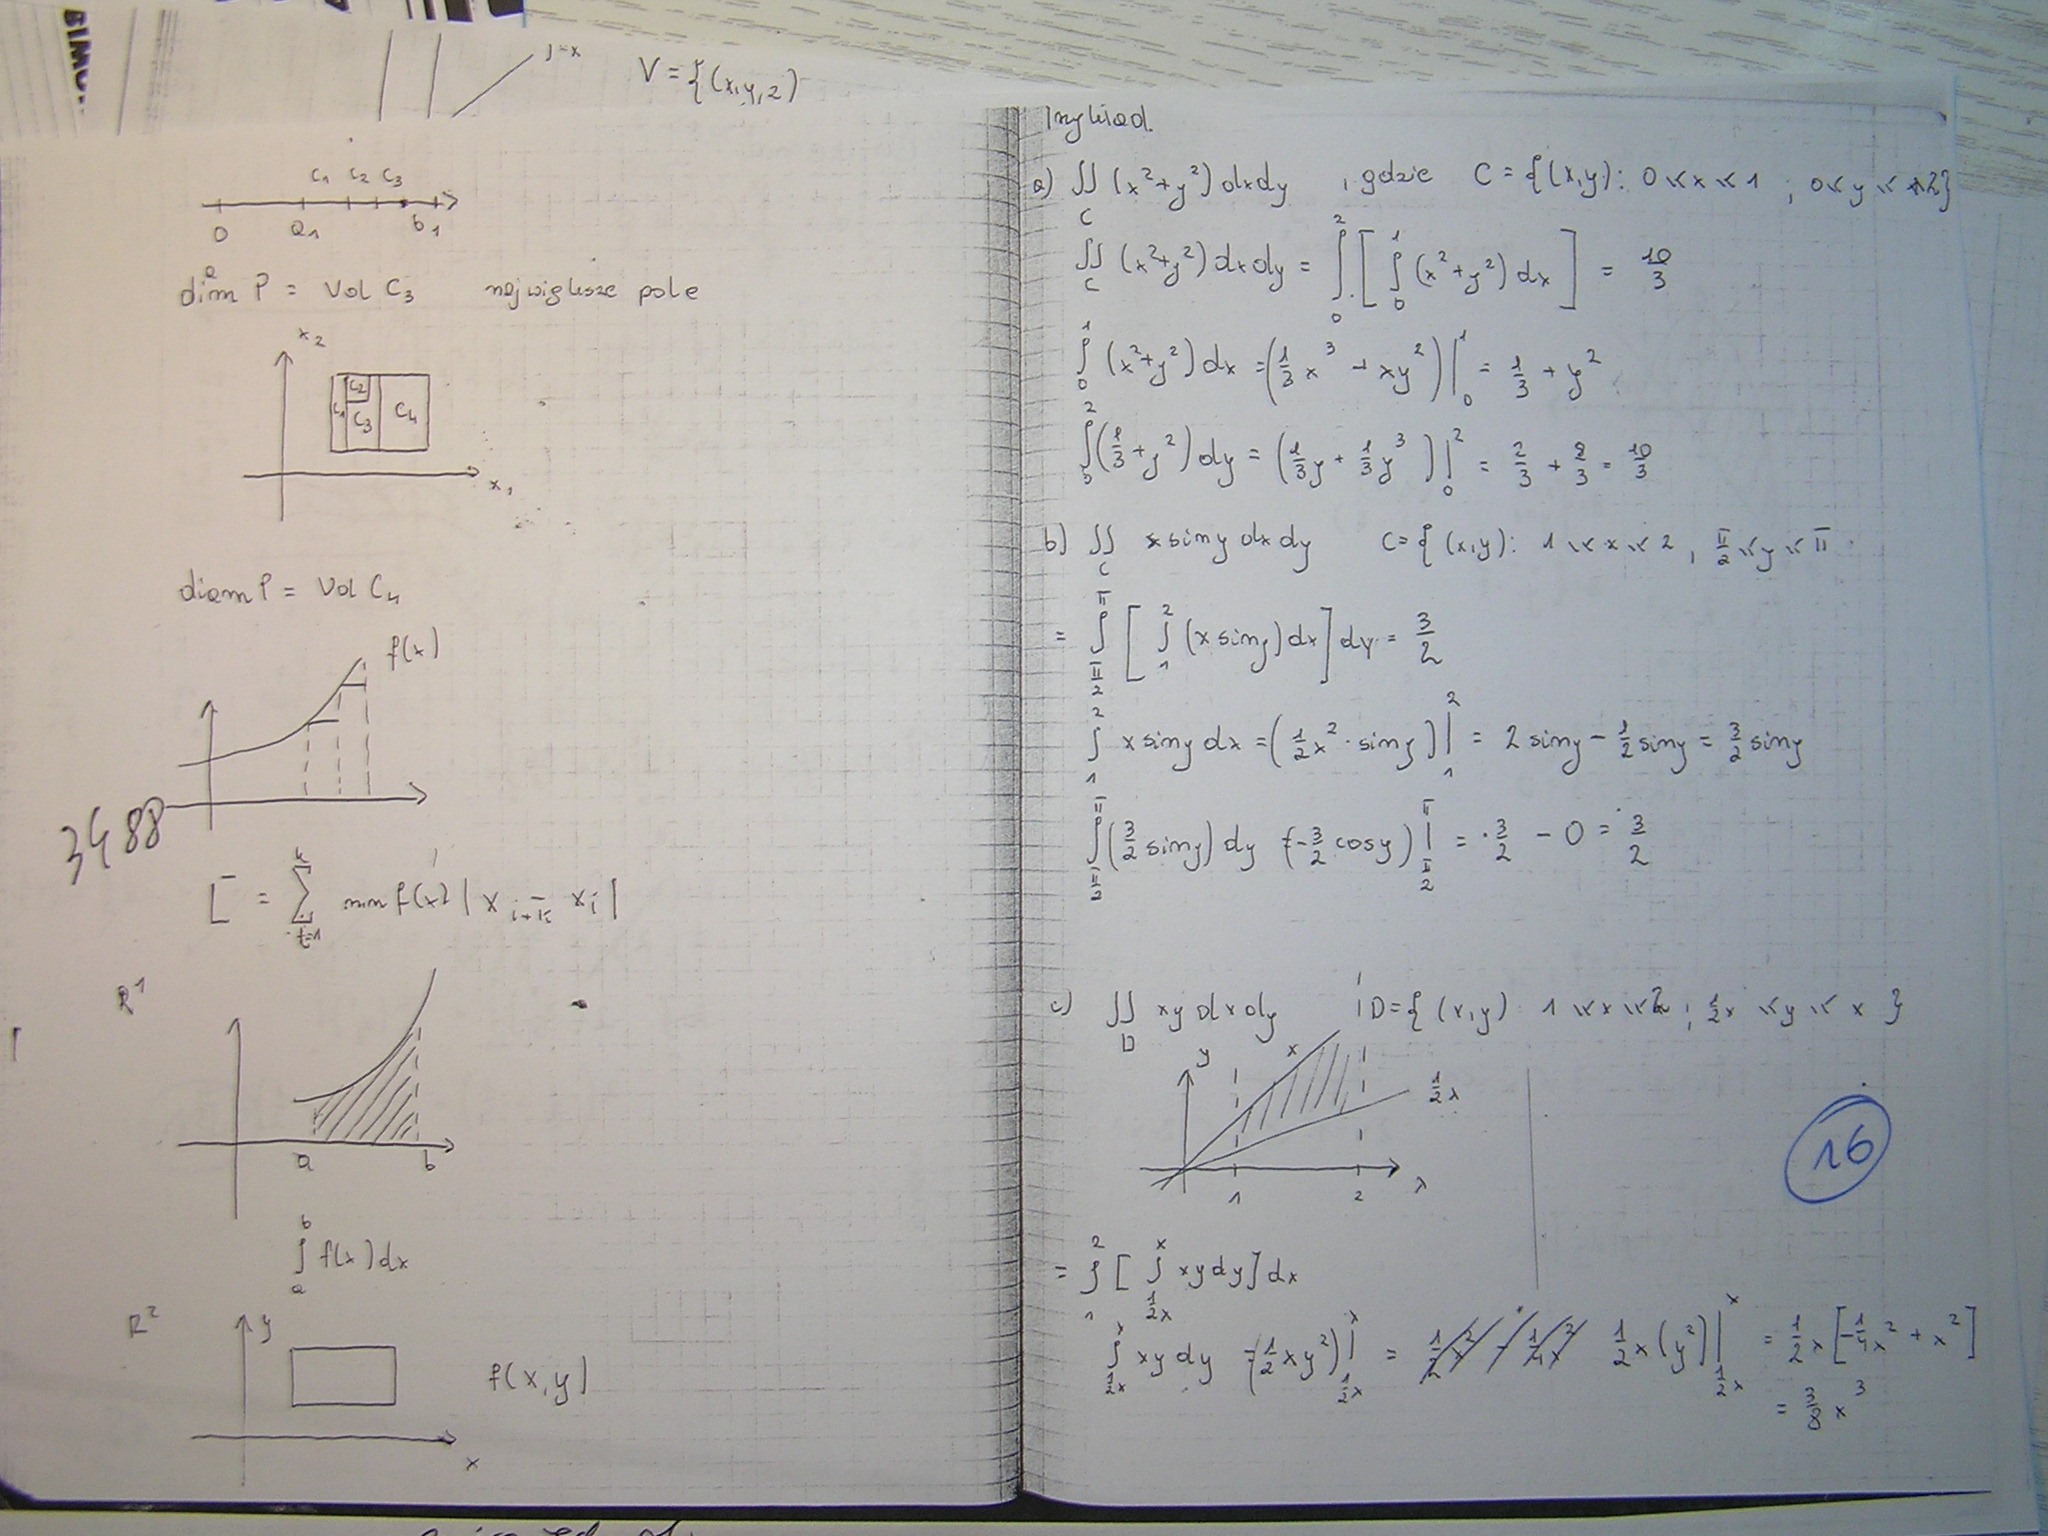 y=x
V = {(x,y,z)
C₁ C₂ C₃
0 a₁ b₁
diam P = Vol C₃ największe pole
x₂
C₁ C₂ C₃ C₄
x₁
diam P = Vol C₄
f(x)
3488
min f(x) | x xᵢ |
R¹
a b
∫ₐᵇ f(x) dx
R²
y
f(x,y)
x
Przykład.
a) ∬_C (x²+y²) dxdy , gdzie C = {(x,y): 0 ≤ x ≤ 1 ; 0 ≤ y ≤ 2}
∬_C (x²+y²) dxdy = ∫₀² [ ∫₀¹ (x²+y²) dx ] = 10/3
∫₀¹ (x²+y²) dx = (1/3 x³ + xy²) |₀¹ = 1/3 + y²
∫₀² (1/3 + y²) dy = (1/3 y + 1/3 y³) |₀² = 2/3 + 8/3 = 10/3
b) ∬_C x siny dx dy C = { (x,y): 1 ≤ x ≤ 2 , π/2 ≤ y ≤ π
= ∫_{π/2}^{π} [ ∫₁² (x siny) dx ] dy = 3/2
∫₁² x siny dx = ( 1/2 x² · siny ) |₁² = 2 siny − 1/2 siny = 3/2 siny
∫_{π/2}^{π} (3/2 siny) dy = (−3/2 cosy) |_{π/2}^{π} = 3/2 − 0 = 3/2
c) ∬_D xy dx dy ; D = { (x,y) 1 ≤ x ≤ 2 ; 1/2 x ≤ y ≤ x }
y x
1/2 x
1 2 x
16
= ∫₁² [ ∫_{1/2 x}^{x} xy dy ] dx
∫_{1/2 x}^{x} xy dy = (1/2 xy²) |_{1/2 x}^{x} = 1/2 x (y²) |_{1/2 x}^{x} = 1/2 x [ −1/4 x² + x² ]
= 3/8 x³